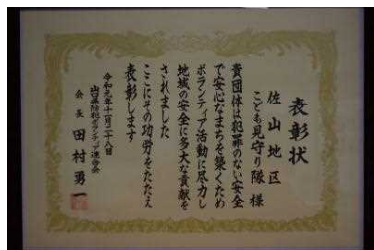 表彰状
佐山地区
こども見守り隊 様
貴団体は犯罪のない安全
で安心なまちを築くため
ボランティア活動に尽力し
地域の安全に多大な貢献を
されました
ここにその功労をたたえ
表彰します
令和元年十一月二十八日
山口県防犯ボランティア連合会
会長 田村勇一